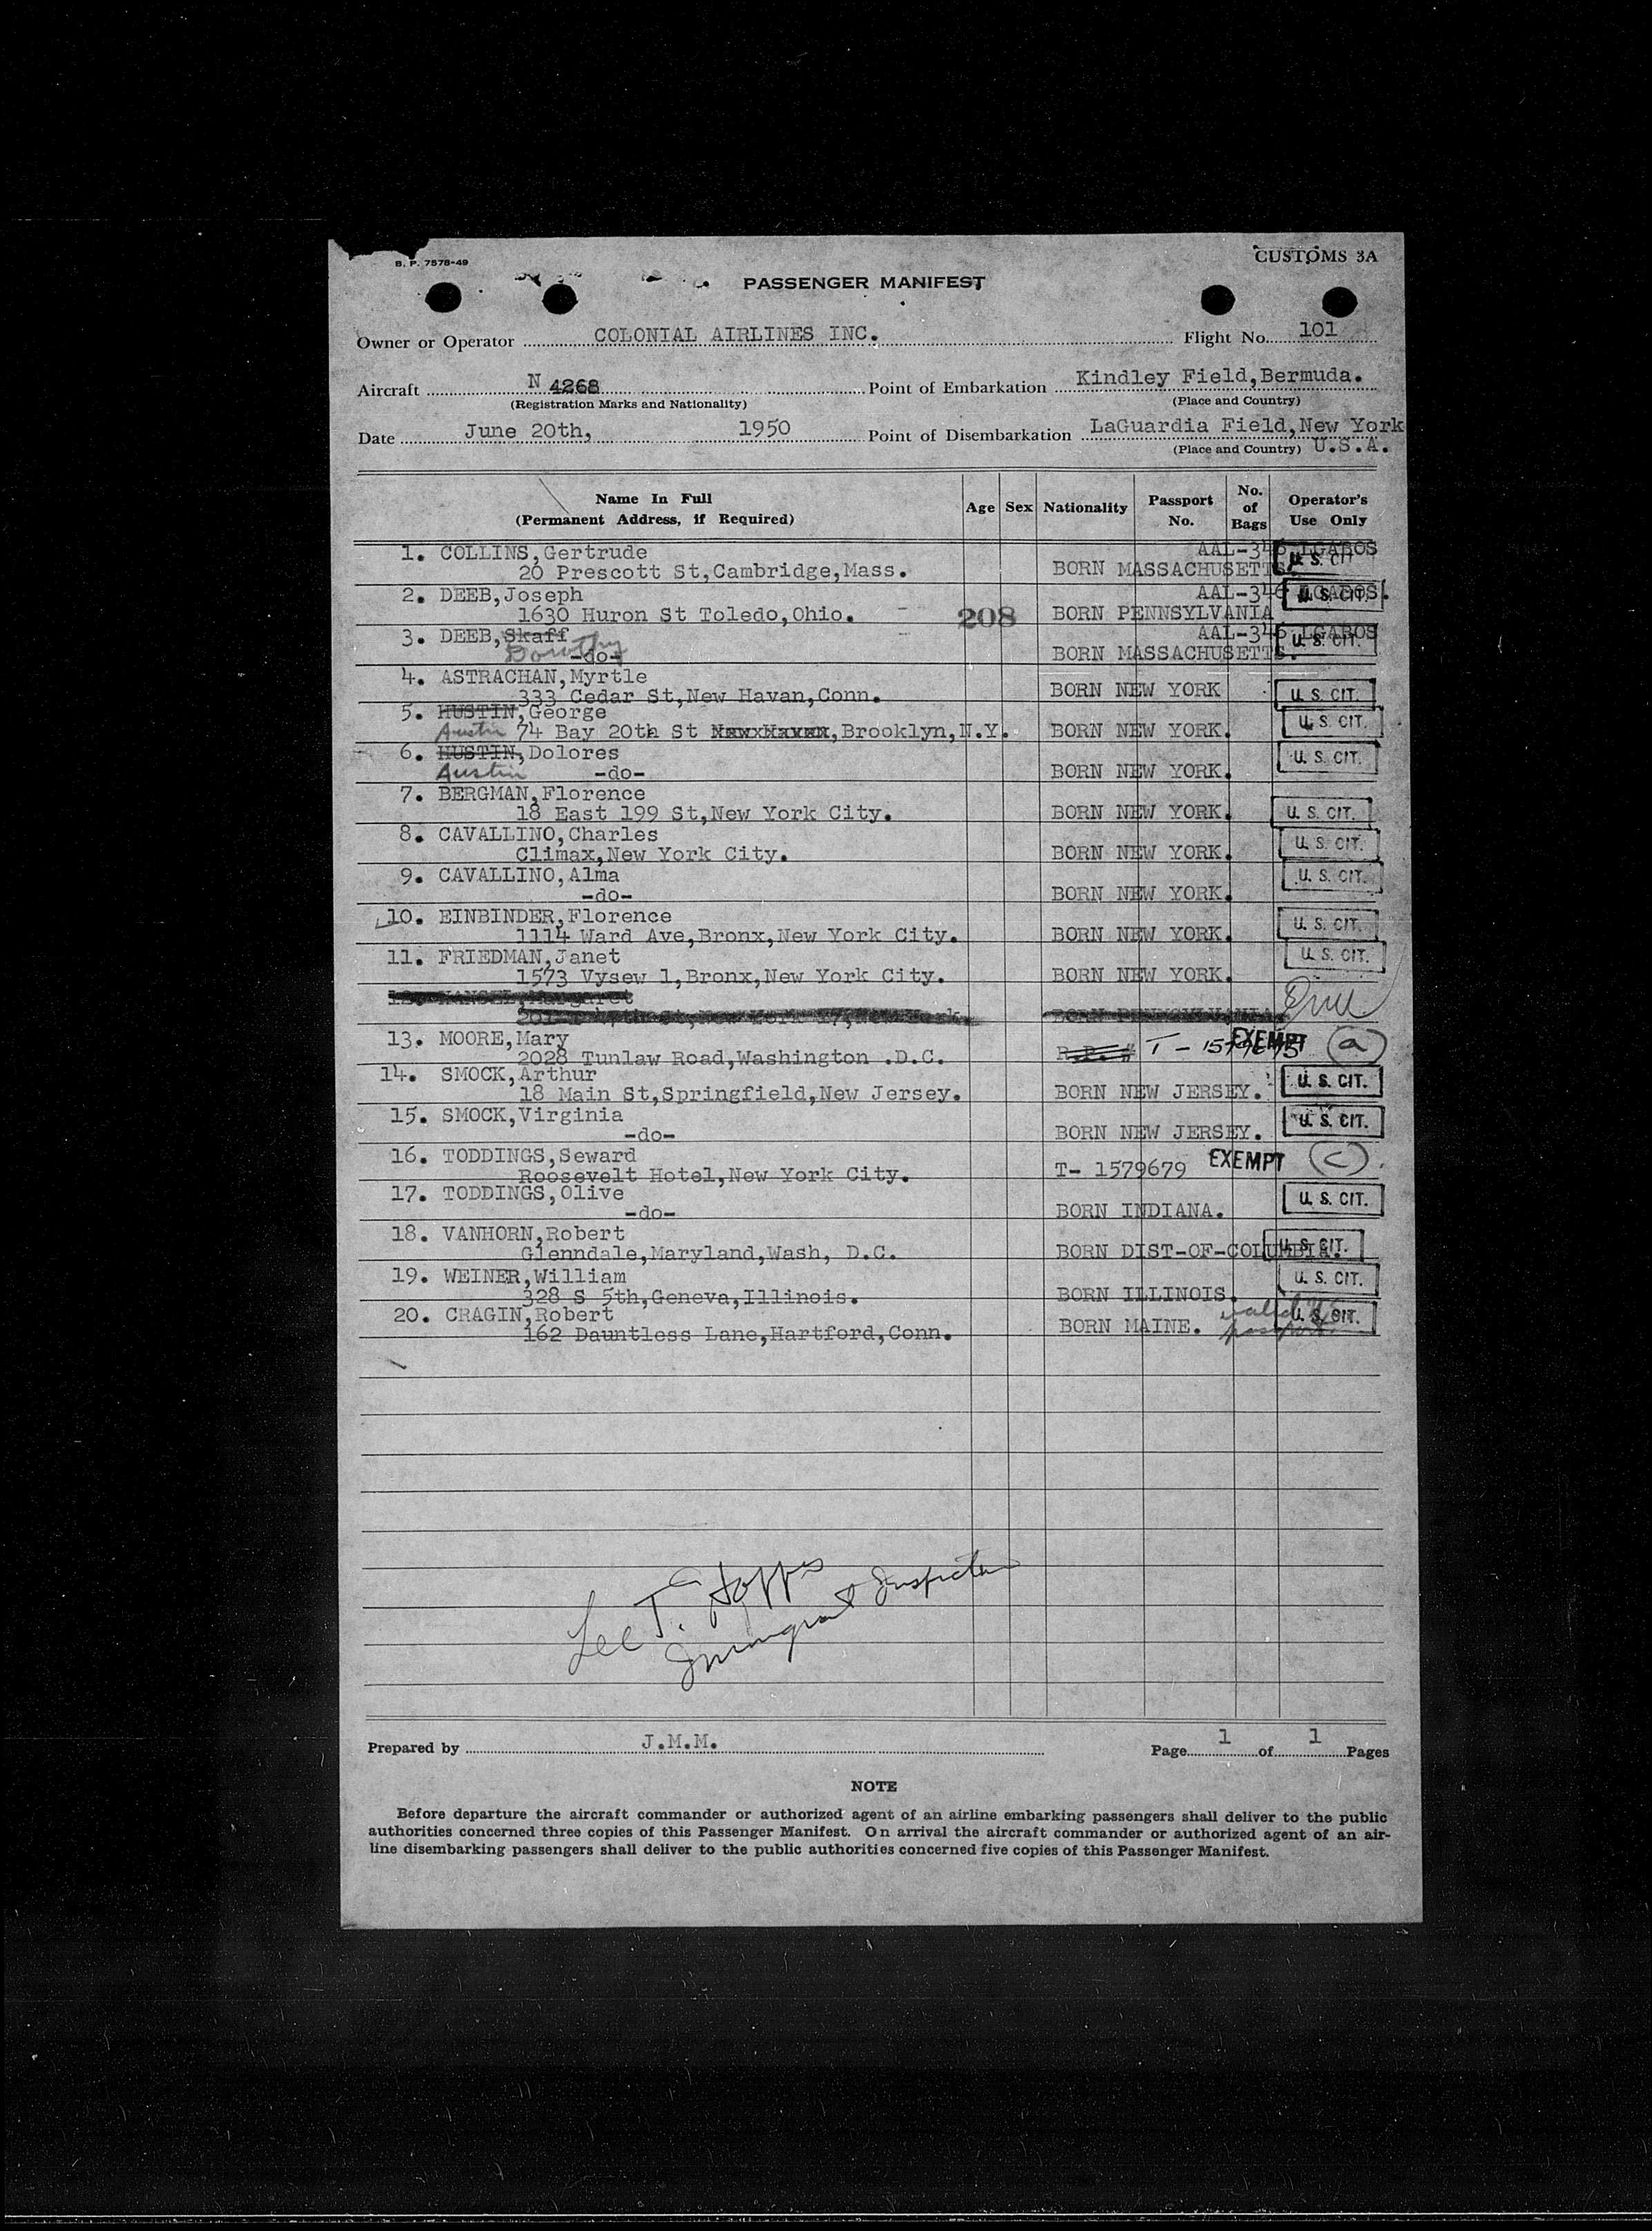 B. P. 7578-49
CUSTOMS 3A
PASSENGER MANIFEST
Owner or Operator COLONIAL AIRLINES INC. Flight No. 101
Aircraft N 4268 Point of Embarkation Kindley Field,Bermuda.
(Registration Marks and Nationality) (Place and Country)
Date June 20th, 1950 Point of Disembarkation LaGuardia Field,New York
(Place and Country) U.S.A.
Name In Full
(Permanent Address, if Required)
Age Sex Nationality Passport No. No. of Bags Operator's Use Only
1. COLLINS,Gertrude AAL-346 LGABOS
20 Prescott St,Cambridge,Mass. BORN MASSACHUSETTS. U. S. CIT.
2. DEEB,Joseph AAL-346 LGABOS. U. S. CIT.
1630 Huron St Toledo,Ohio. 208 BORN PENNSYLVANIA
3. DEEB,Skaff AAL-346 LGABOS U. S. CIT.
Dorothy -do- BORN MASSACHUSETTS.
4. ASTRACHAN,Myrtle
333 Cedar St,New Havan,Conn. BORN NEW YORK U. S. CIT.
5. HUSTIN,George U. S. CIT.
Austin 74 Bay 20th St New Haven,Brooklyn,N.Y. BORN NEW YORK.
6. HUSTIN,Dolores U. S. CIT.
Austin -do- BORN NEW YORK.
7. BERGMAN,Florence
18 East 199 St,New York City. BORN NEW YORK. U. S. CIT.
8. CAVALLINO,Charles U. S. CIT.
Climax,New York City. BORN NEW YORK.
9. CAVALLINO,Alma U. S. CIT.
-do- BORN NEW YORK.
10. EINBINDER,Florence U. S. CIT.
1114 Ward Ave,Bronx,New York City. BORN NEW YORK.
11. FRIEDMAN,Janet U. S. CIT.
1573 Vysew 1,Bronx,New York City. BORN NEW YORK.
12. Margaret
BORN PENNSYLVANIA
13. MOORE,Mary EXEMPT (a)
2028 Tunlaw Road,Washington .D.C. T-
14. SMOCK,Arthur U. S. CIT.
18 Main St,Springfield,New Jersey. BORN NEW JERSEY.
15. SMOCK,Virginia U. S. CIT.
-do- BORN NEW JERSEY.
16. TODDINGS,Seward EXEMPT (c)
Roosevelt Hotel,New York City. T- 1579679
17. TODDINGS,Olive U. S. CIT.
-do- BORN INDIANA.
18. VANHORN,Robert
Glenndale,Maryland,Wash, D.C. BORN DIST-OF-COLUMBIA. U. S. CIT.
19. WEINER,William U. S. CIT.
328 S 5th,Geneva,Illinois. BORN ILLINOIS.
20. CRAGIN,Robert valid U. S. CIT.
162 Dauntless Lane,Hartford,Conn. BORN MAINE. passport.
Lee T. Hopps
Immigrant Inspector
Prepared by J.M.M. Page 1 of 1 Pages
NOTE
Before departure the aircraft commander or authorized agent of an airline embarking passengers shall deliver to the public
authorities concerned three copies of this Passenger Manifest. On arrival the aircraft commander or authorized agent of an air-
line disembarking passengers shall deliver to the public authorities concerned five copies of this Passenger Manifest.